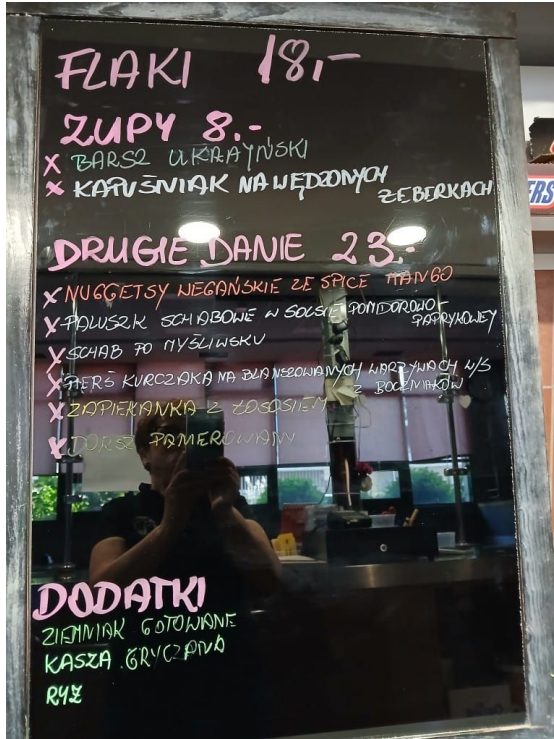 FLAKI 18,-
ZUPY 8.-
X BARSZ UKRAYŃSKI
X KAPUŚNIAK NA WĘDZONYCH
ŻEBERKACH
DRUGIE DANIE 23.-
X NUGGETSY WEGAŃSKIE ZE SPICE MANGO
X PALUSZK SCHABOWE W SOSIE POMIDOROWO-
PAPRYKOWEY
X SCHAB PO MYŚLIWSKU
X PIERŚ KURCZAKA NA BLANSZOWANYCH WARZYWACH W/S
Z BOCZNIAKÓW
X ZAPIEKANKA Z ŁOSOSIEM
X DORSZ PANEROWANY
DODATKI
ZIEMNIAK GOTOWANE
KASZA GRYCZANA
RYŻ
ERS